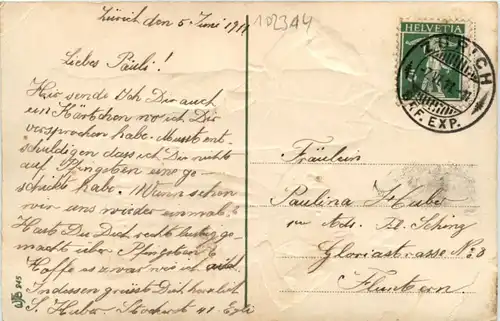 Zürich den 5 Juni 1911
102344
Liebes Päuli!
Hier sende ich Dir auch
ein Kärtchen wo ich Dir
versprochen habe. Musst ent-
schuldigen dass ich Dir nichts
auf Pfingsten ge-
schickt habe. Wann sehen
wir uns wieder einmal?
Hast Du Dich recht lustig ge-
macht über Pfingsten
Hoffe es zwar wie ich auch.
Indessen grüsst Dich herzlich
S. Huber, 41
HELVETIA
ZÜRICH
F. EXP.
Fräulein
Paulina Huber
per Ads.
Gloriastrasse No. 3
Fluntern.